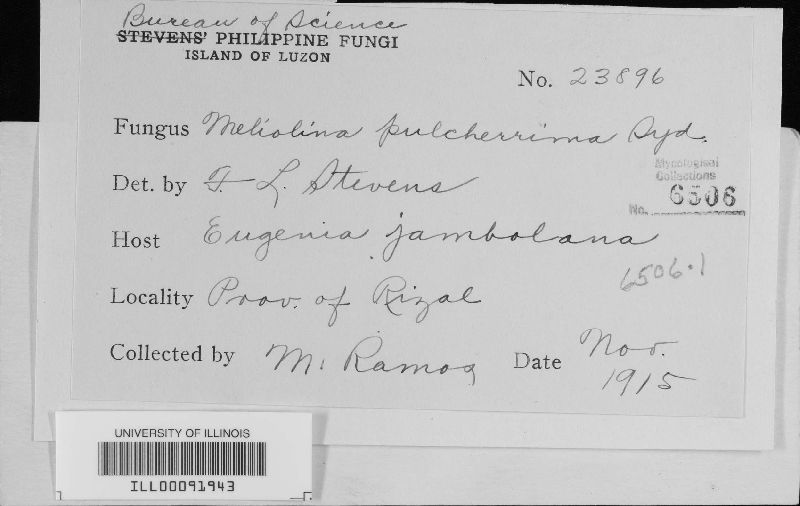 Bureau of Science
STEVENS' PHILIPPINE FUNGI
ISLAND OF LUZON
No. 23896
Fungus Meliolina pulcherrima Syd.
Mycological
Collections
No. 6506
Det. by F. L. Stevens
Host Eugenia jambolana
6506.1
Locality Prov. of Rizal
Collected by M. Ramos Date Nov.
1915
UNIVERSITY OF ILLINOIS
ILL00091943